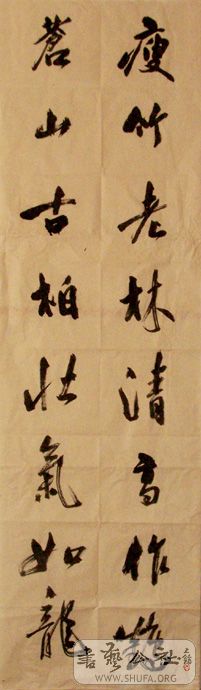 瘦竹老林清高作
蒼山古柏壯氣如龍
書藝公社
WWW.SHUFA.ORG